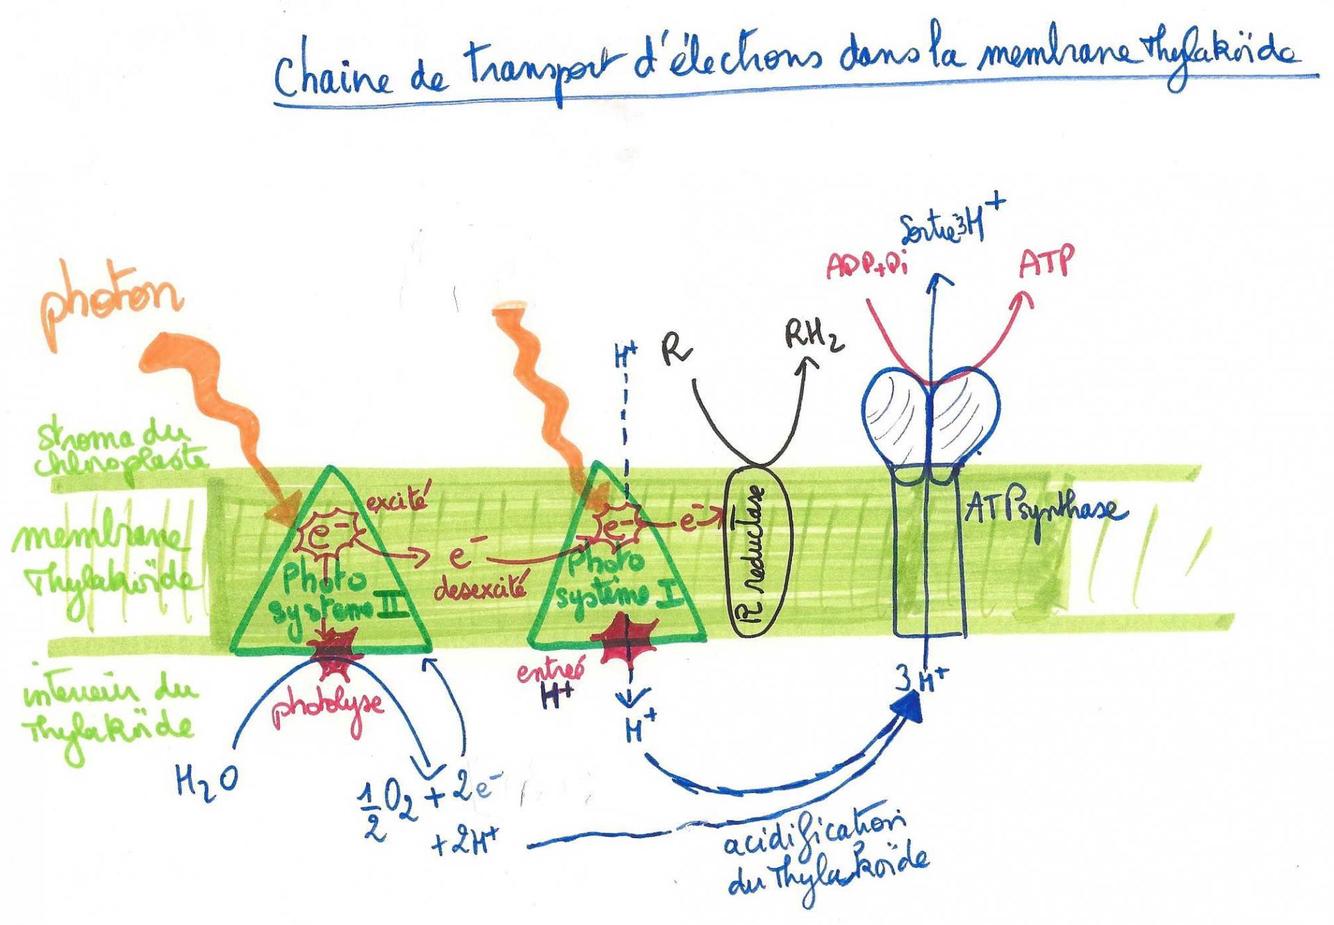 Chaine de transport d'électrons dans la membrane Thylakoïde
Sortie 3H+
ADP+Pi
ATP
photon
H+
R
RH2
stroma du
chloroplaste
excité
e-
e-
e-
e-
desexcité
membrane
Thylakoïde
Photo
système II
Photo
système I
R reductase
ATPsynthase
interieur du
Thylakoïde
photolyse
entreé
H+
H+
3 H+
H2O
1/2 O2 + 2e-
+ 2H+
acidification
du Thylakoïde